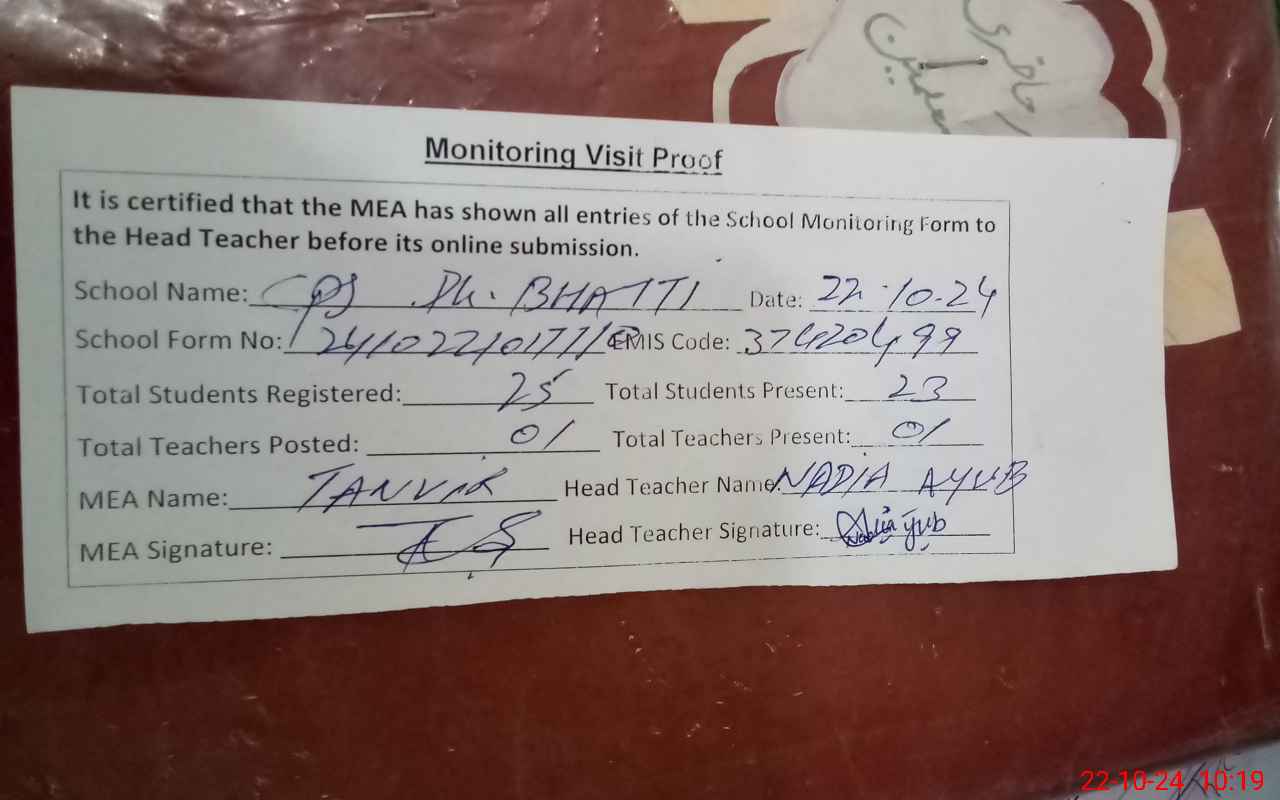 حاضری
معلمین
Monitoring Visit Proof
It is certified that the MEA has shown all entries of the School Monitoring Form to
the Head Teacher before its online submission.
School Name: GPS Dh. BHATTI Date: 22-10-24
School Form No: EMIS Code: 37420499
Total Students Registered: 25 Total Students Present: 23
Total Teachers Posted: 01 Total Teachers Present: 01
MEA Name: TANVIR Head Teacher Name: NADIA AYUB
MEA Signature: Head Teacher Signature:
22-10-24 10:19